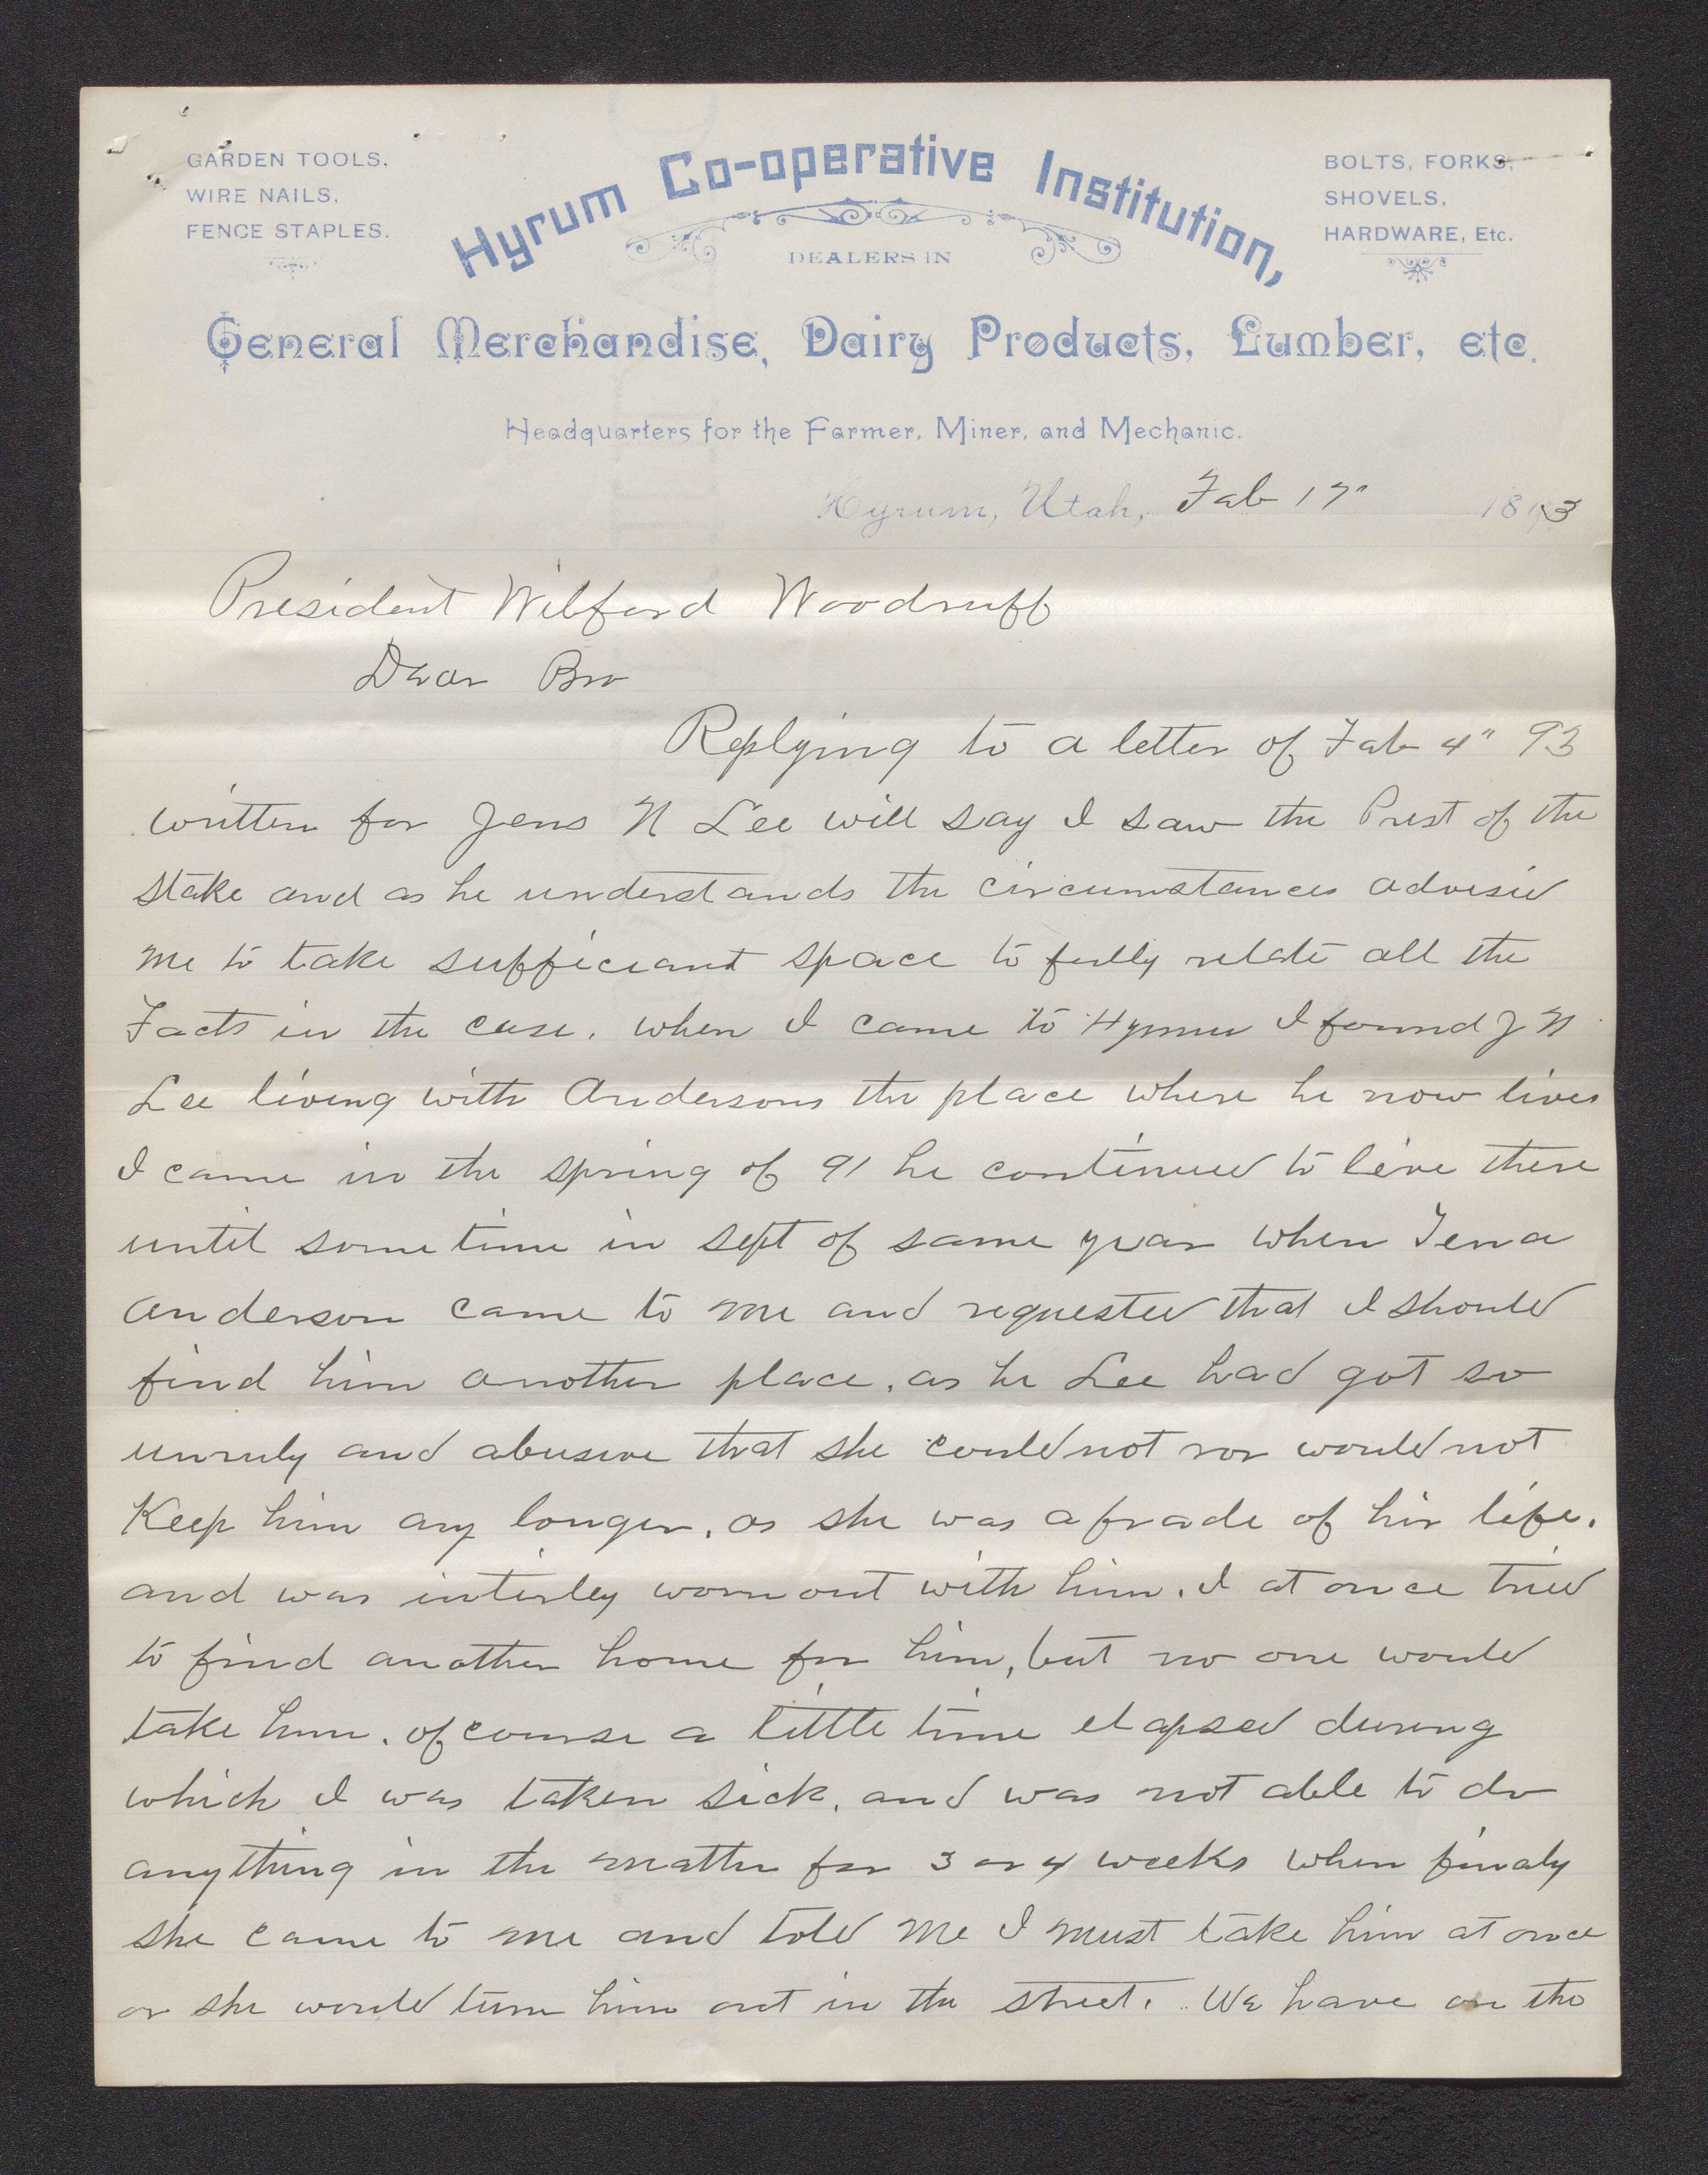 GARDEN TOOLS,
WIRE NAILS,
FENCE STAPLES.
Hyrum Co-operative Institution,
DEALERS IN
BOLTS, FORKS,
SHOVELS,
HARDWARE, Etc.
General Merchandise, Dairy Products, Lumber, etc.
Headquarters for the Farmer, Miner, and Mechanic.
Hyrum, Utah, Feb 17" 1893
President Wilford Woodruff
Dear Bro
Replying to a letter of Feb 4" 93
written for Jens N Lee will say I saw the Prest of the
stake and as he understands the circumstances advised
me to take sufficiant space to fully relate all the
Facts in the case. when I came to Hyrum I found J N
Lee living with Andersons the place where he now lives
I came in the spring of 91 he continued to live there
until some time in sept of same year when Tena
anderson came to me and requested that I should
find him another place, as he Lee had got so
unruly and abusive that she could not nor would not
Keep him any longer, as she was afrade of hir life.
and was intirley worn out with him. I at once tried
to find another home for him, but no one would
take him. of course a little time elapsed during
which I was taken sick, and was not able to do
anything in the matter for 3 or 4 weeks when finaly
she came to me and told me I must take him at once
or she would turn him out in the street. We have on the